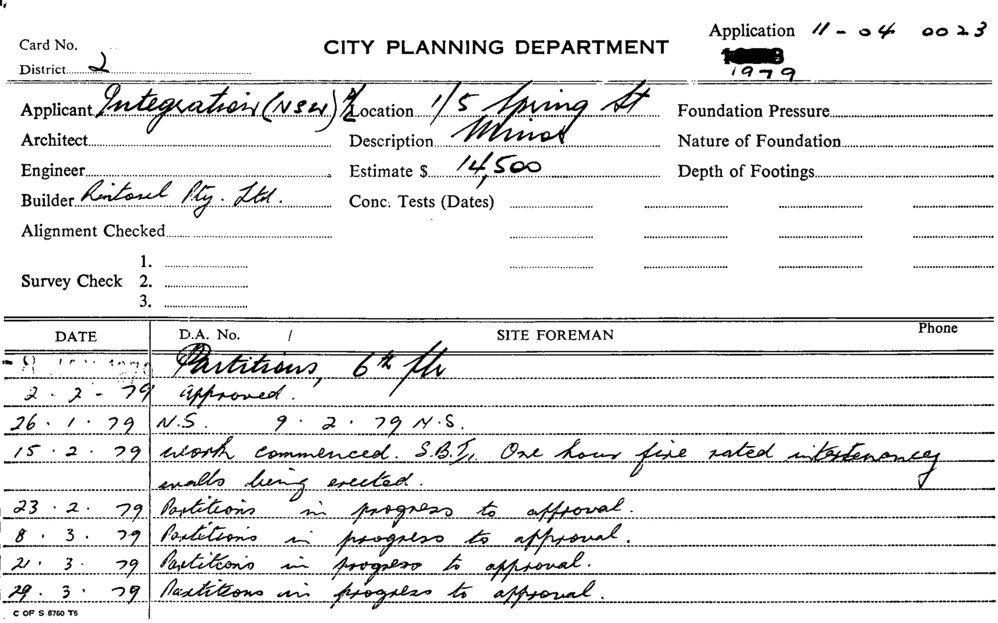 Application 11 - 04 0023
Card No.
CITY PLANNING DEPARTMENT
District 2
1979
Applicant Integration (NSW) P/L Location 1/5 Spring St Foundation Pressure
Architect Description Minor Nature of Foundation
Engineer Estimate $ 14,500 Depth of Footings
Builder Rintosel Pty. Ltd. Conc. Tests (Dates)
Alignment Checked
1.
Survey Check 2.
3.
DATE D.A. No. / SITE FOREMAN Phone
Partitions, 6th flr
2 . 2 - 79 Approved.
26 . 1 . 79 N.S. 9 . 2 . 79 N.S.
15 . 2 . 79 work commenced. S.B.T. One hour fire rated intertenancy
walls being erected.
23 . 2 . 79 Partitions in progress to approval.
8 . 3 . 79 Partitions in progress to approval.
21 . 3 . 79 Partitions in progress to approval.
29 . 3 . 79 Partitions in progress to approval.
C OF S 6760 T5